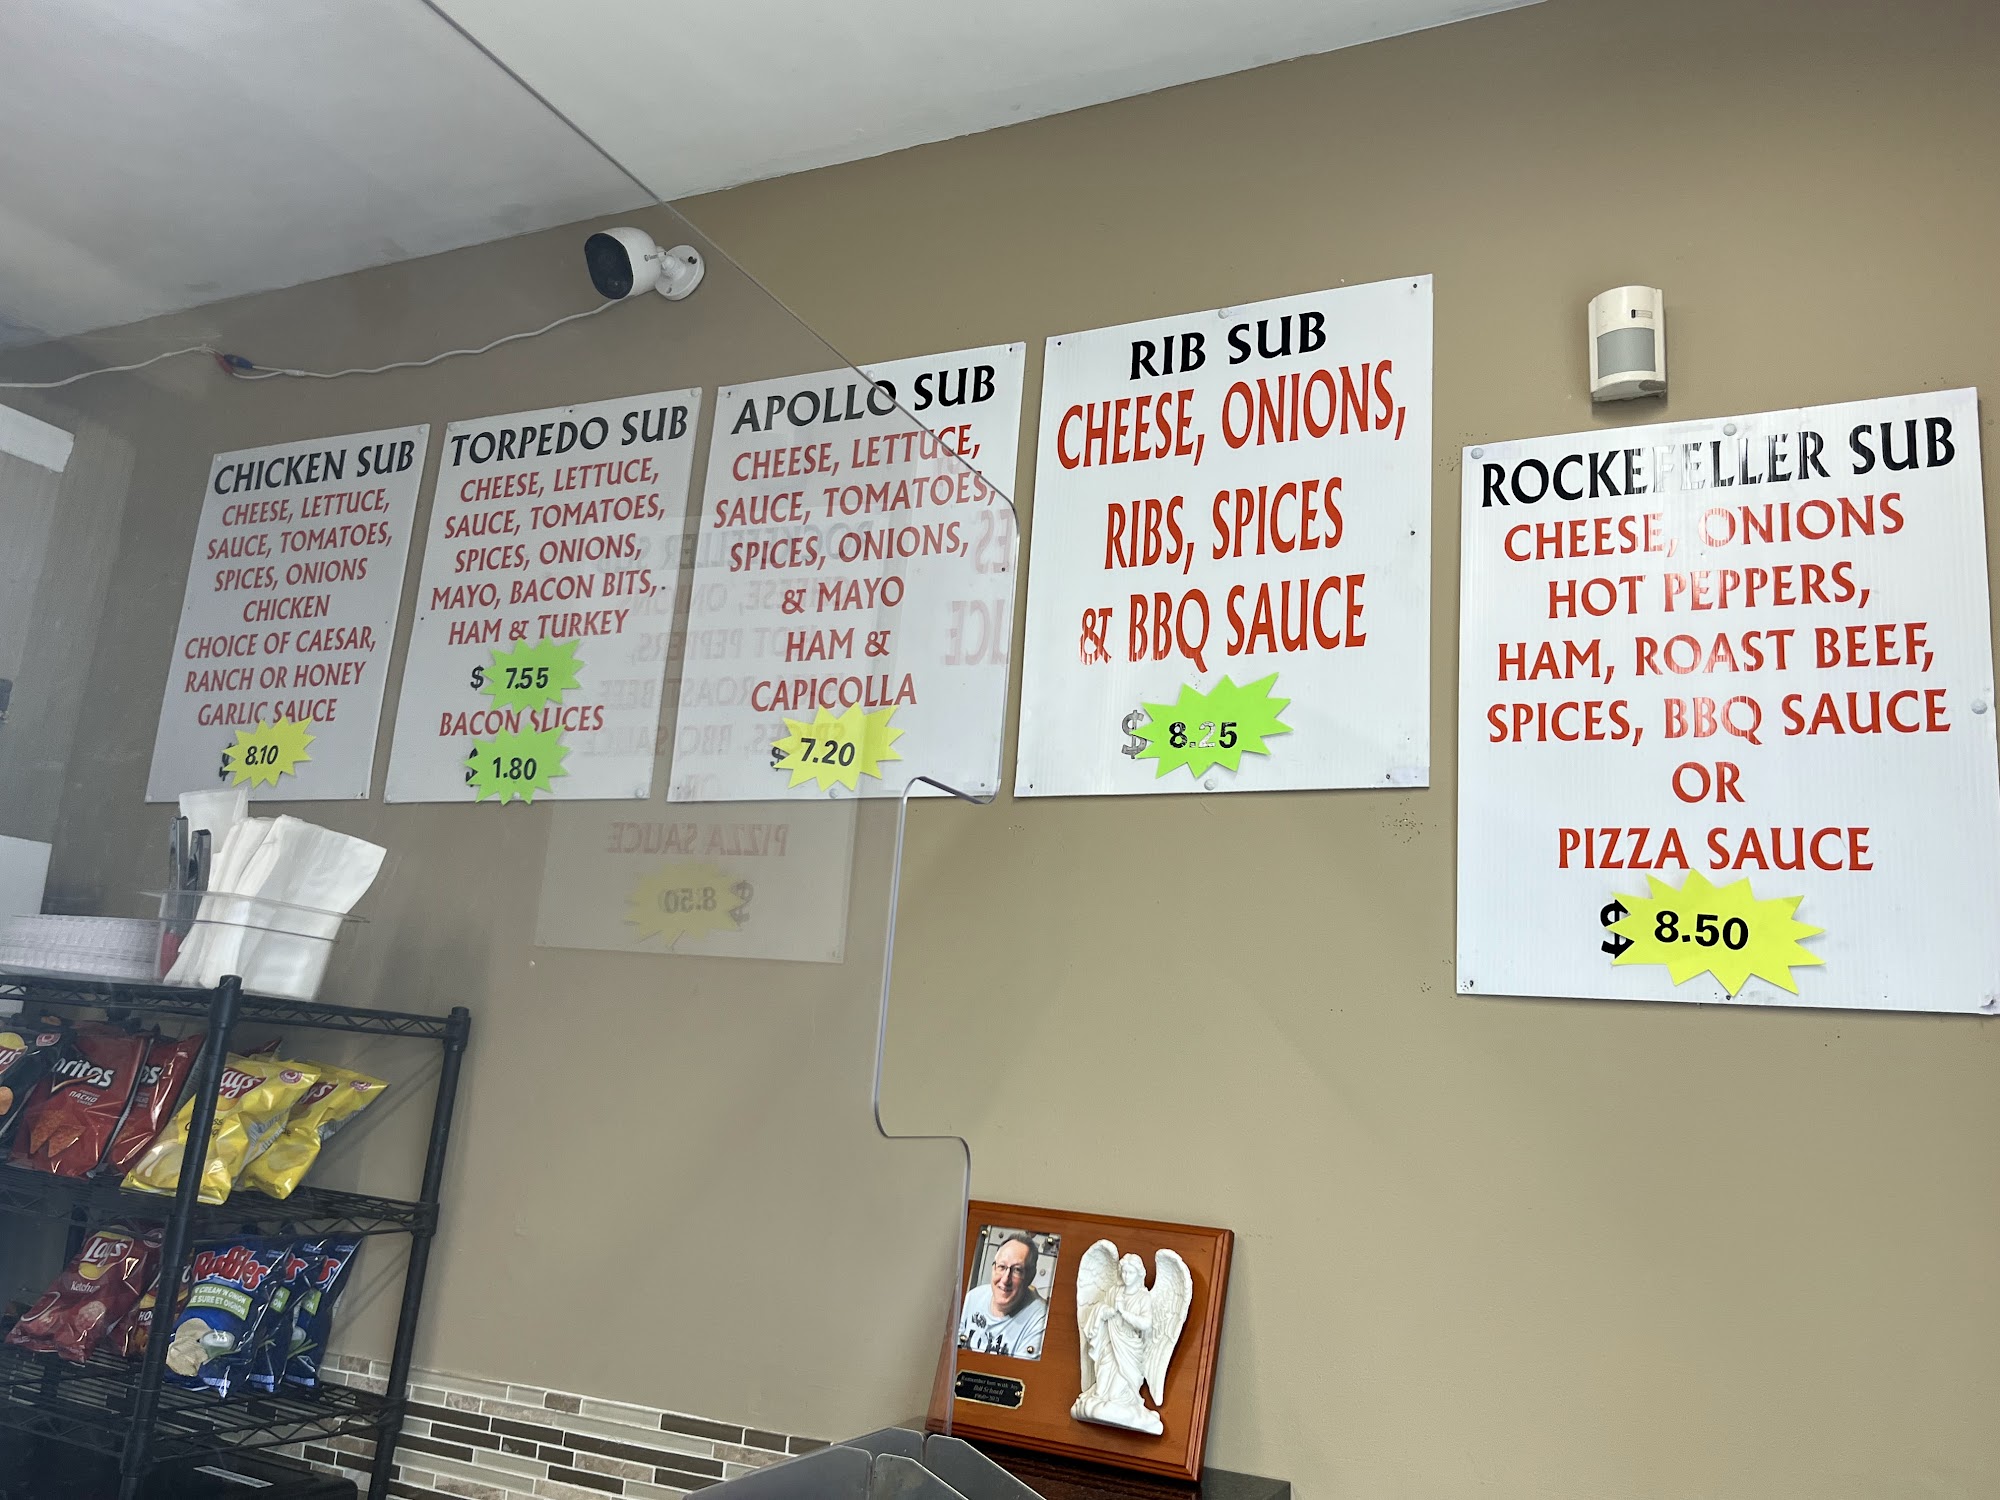 CHICKEN SUB
CHEESE, LETTUCE,
SAUCE, TOMATOES,
SPICES, ONIONS
CHICKEN
CHOICE OF CAESAR,
RANCH OR HONEY
GARLIC SAUCE
$ 8.10
TORPEDO SUB
CHEESE, LETTUCE,
SAUCE, TOMATOES,
SPICES, ONIONS,
MAYO, BACON BITS,
HAM & TURKEY
$ 7.55
BACON SLICES
$ 1.80
APOLLO SUB
CHEESE, LETTUCE,
SAUCE, TOMATOES,
SPICES, ONIONS,
& MAYO
HAM &
CAPICOLLA
$ 7.20
RIB SUB
CHEESE, ONIONS,
RIBS, SPICES
& BBQ SAUCE
$ 8.25
ROCKEFELLER SUB
CHEESE, ONIONS
HOT PEPPERS,
HAM, ROAST BEEF,
SPICES, BBQ SAUCE
OR
PIZZA SAUCE
$ 8.50
Lay's
Ketchup
Ruffles